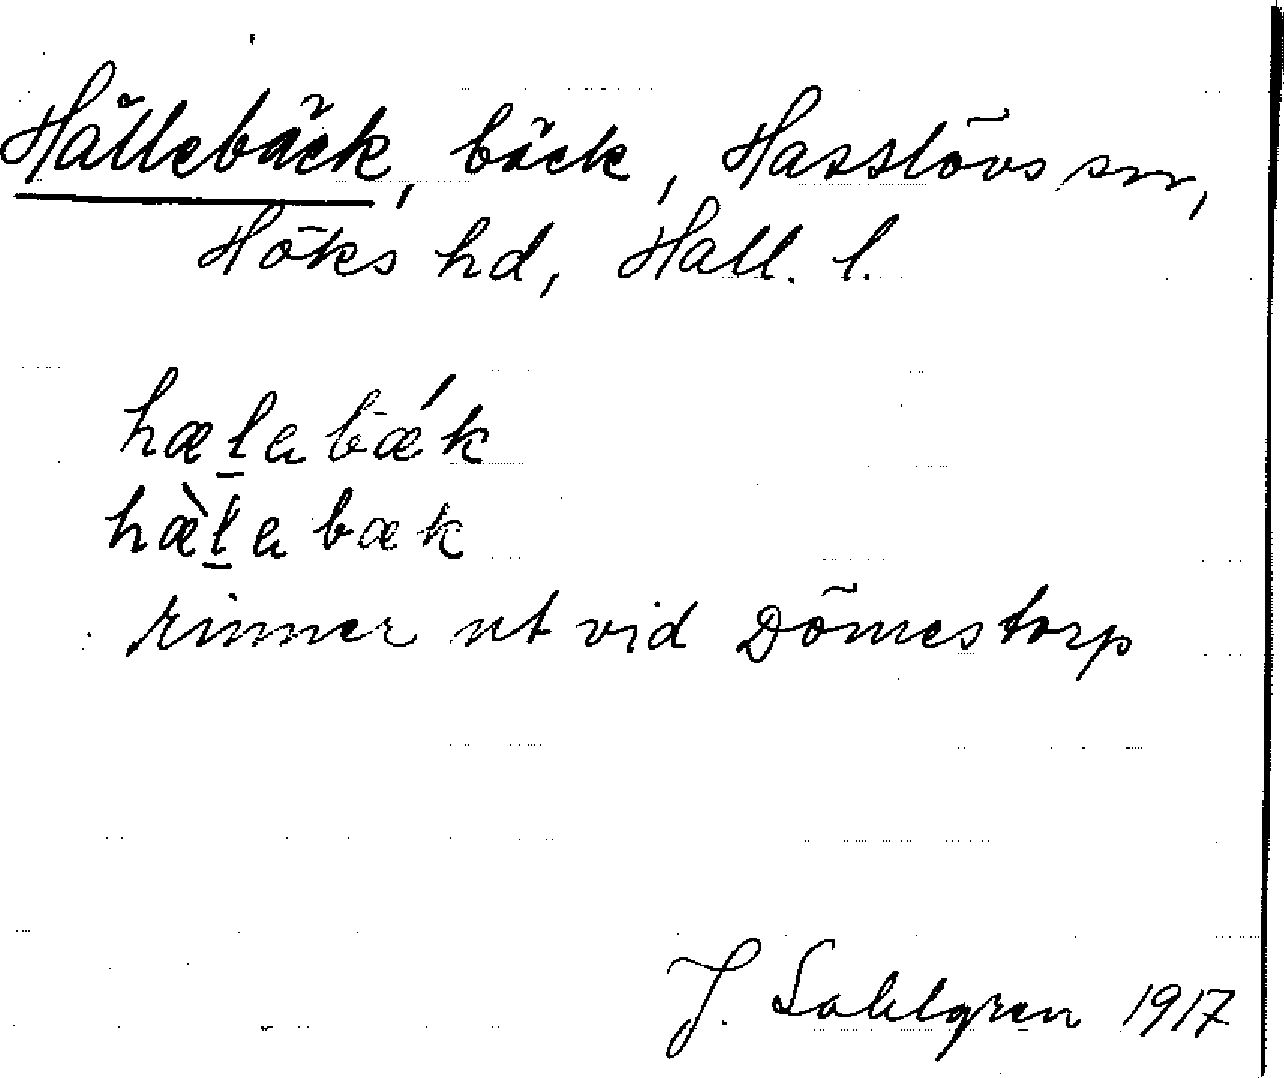 Hällebäck, bäck, Hasslövs sn,
Höks hd, Hall. l.
hæl̲ebǽk
hæ̀l̲ebæk
rinner ut vid Dömestorp
J. Sahlgren 1917